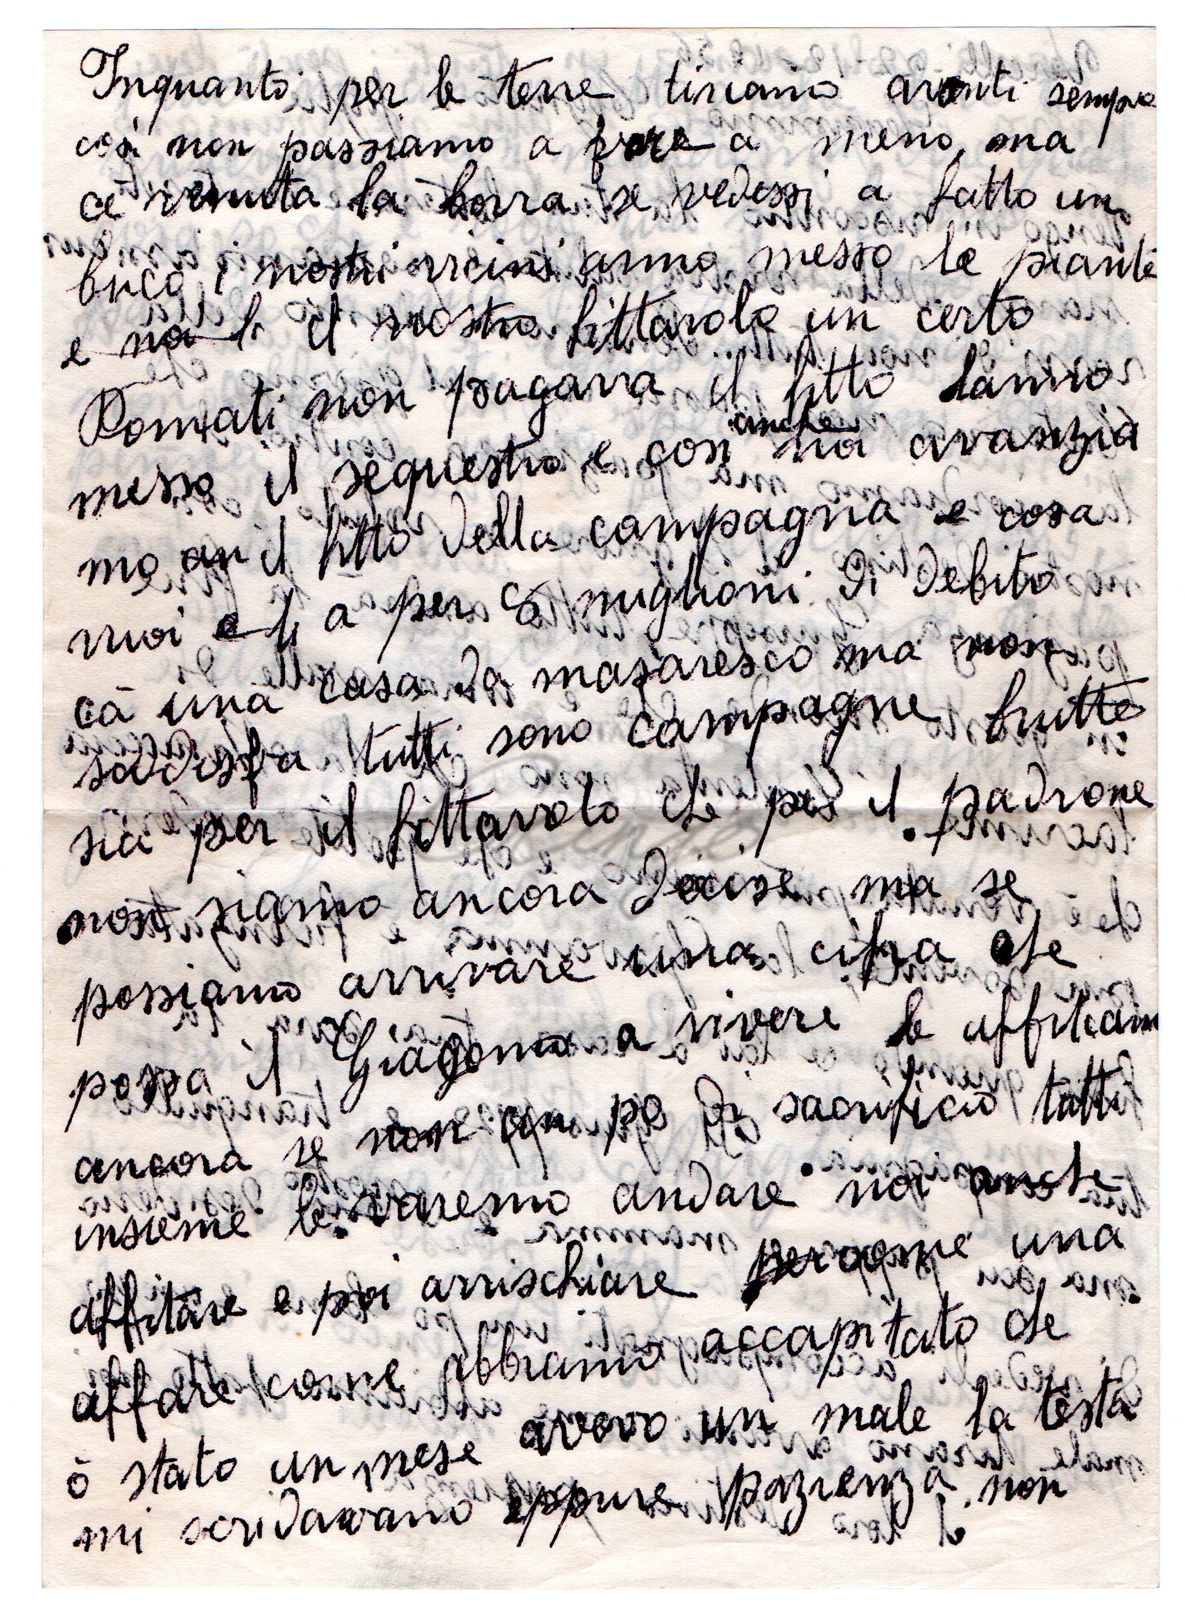 Inquanto per le terre tiriamo avanti sempre
così non passiamo a fare a meno, ma
cè venuta la borra se vedessi a fatto un
buco i nostri vicini anno messo le piante
e noi li il nostro fittavolo un certo
Romati non pagava il fitto lanno
messo il sequestro e con anche noi avanzia
mo an il fitto della campagna e cosa
vuoi e li à per 8 miglioni di debito
cà una casa da masaresco ma non
sadisfa tutti sono campagne brutte
sia per il fittavolo che per il padrone
non siamo ancora decise ma se
possiamo arrivare una cifra che
possa il Giagomo a vivere le affitiam
ancora se non un po di sacrificio tutti
insieme le varemo andare noi anche
affitare e poi arrischiare per come una
affare come abbiamo accapitato che
ò stato un mese avevo un male la testa
mi scridavano eppure pazienza non